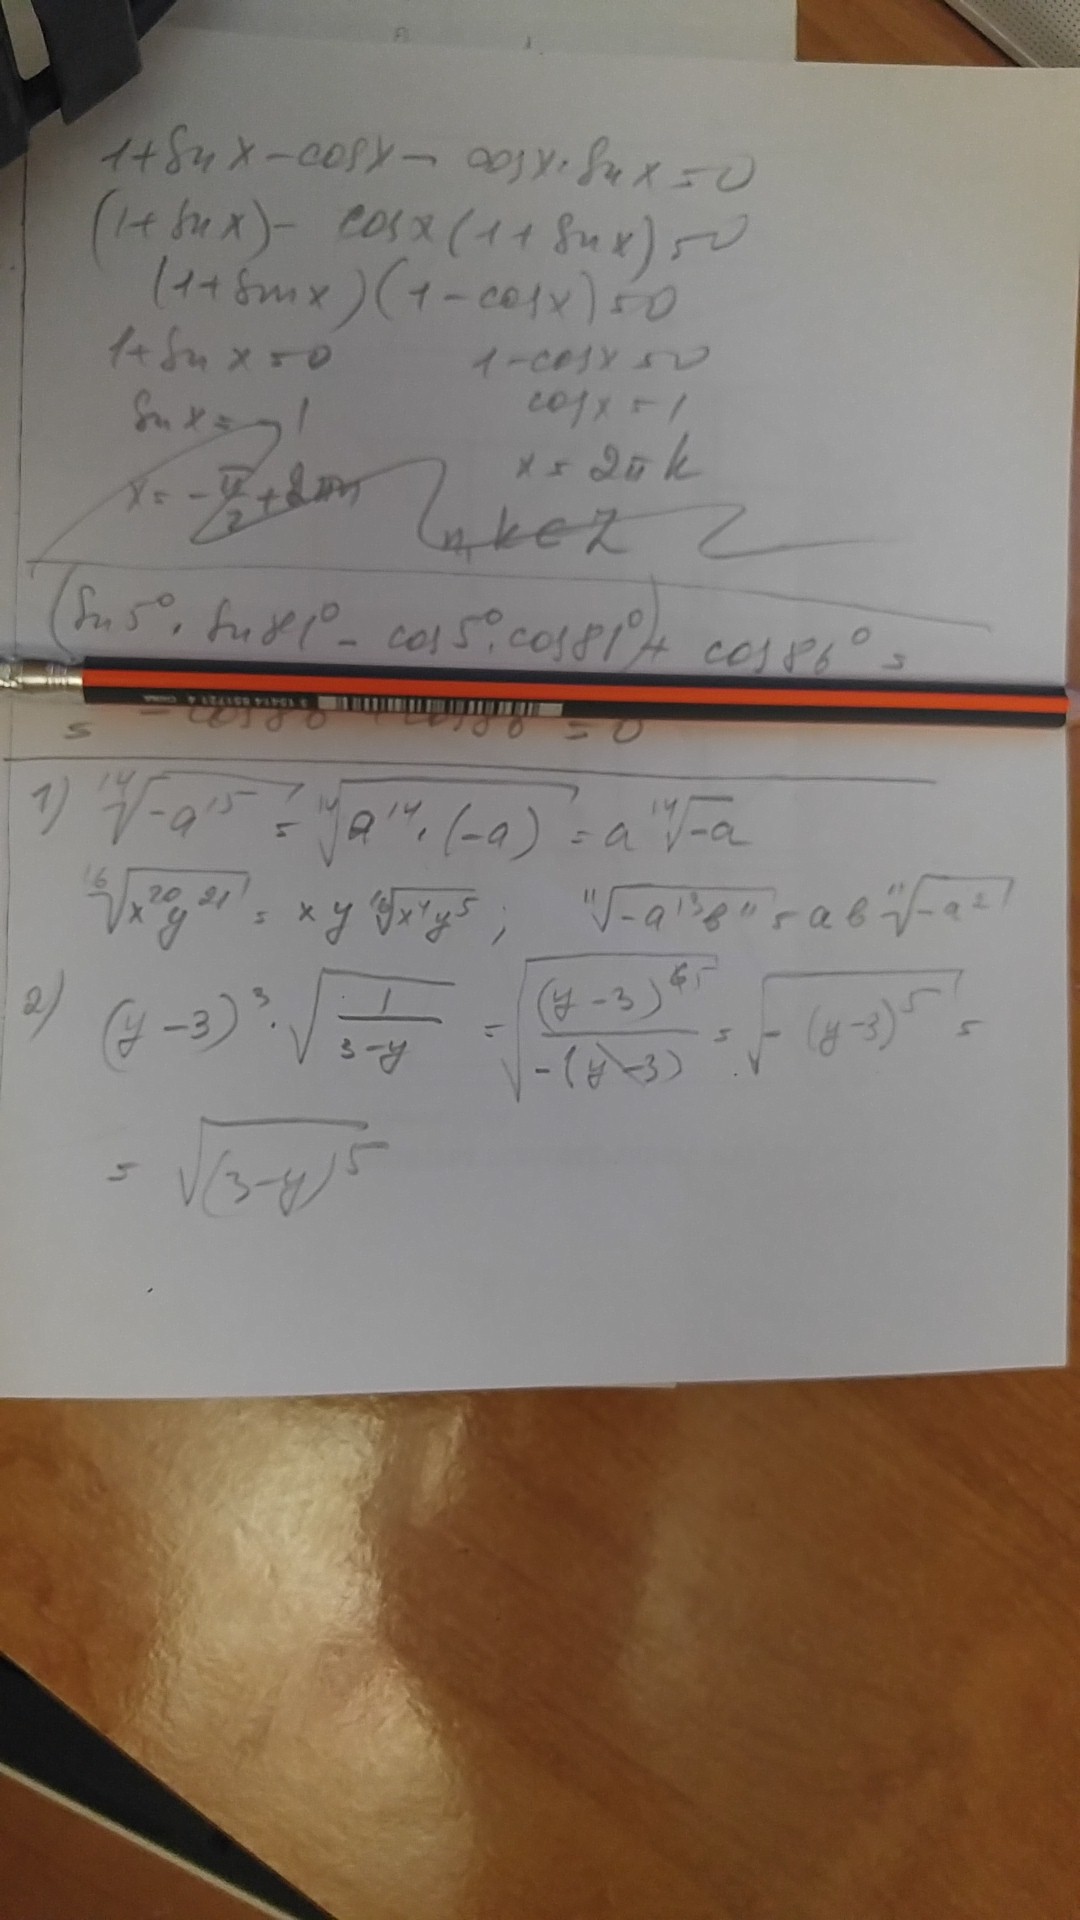 1+sin x-cos x- cos x·sin x=0
(1+sin x)- cos x(1+sin x)=0
(1+sin x)(1-cos x)=0
1+sin x=0 1-cos x=0
sin x=-1 cos x=1
x=-π/2+2πn x=2πk
n, k∈Z
(sin5°·sin81°-cos5°·cos81°)+cos86°=
= -cos86°+cos86°=0
1) ¹⁴√(-a¹⁵) = ¹⁴√(a¹⁴·(-a)) = a ¹⁴√(-a)
¹⁶√(x²⁰y²¹) = xy ¹⁶√(x⁴y⁵); ¹¹√(-a¹³b¹¹) = ab ¹¹√(-a²)
2) (y-3)³·√(1/(3-y)) = √((y-3)⁶⁵/(-(y-3))) = √(-(y-3)⁵) =
= √((3-y)⁵)